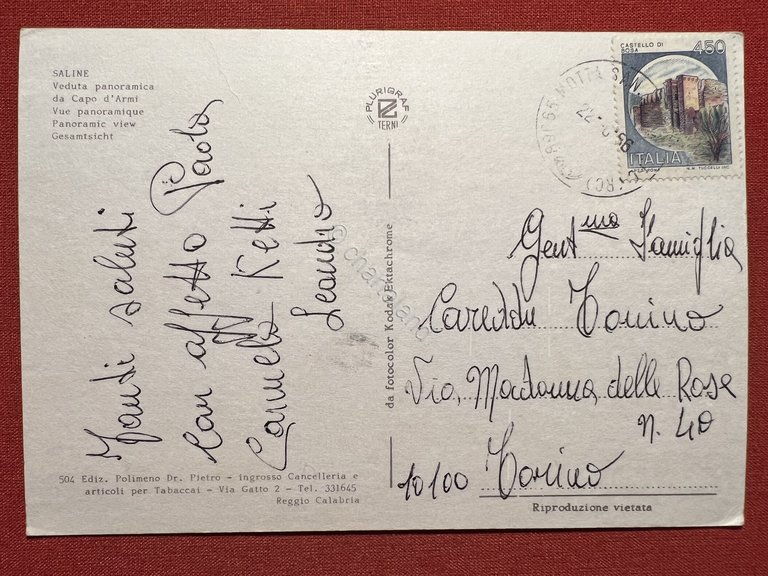 SALINE
Veduta panoramica
da Capo d'Armi
Vue panoramique
Panoramic view
Gesamtsicht
Tanti saluti
con affetto Paola
Carmelo Ketti
Leandro
504 Ediz. Polimeno Dr. Pietro - ingrosso Cancelleria e
articoli per Tabaccai - Via Gatto 2 - Tel. 331645
Reggio Calabria
PLURIGRAF
TERNI
da fotocolor Kodak Ektachrome
CASTELLO DI
BOSA
450
ITALIA
89065 MOTTA SAN
(RC)
Gent.ma Famiglia
Careddu Tonino
Via Madonna delle Rose
n. 40
10100 Torino
Riproduzione vietata